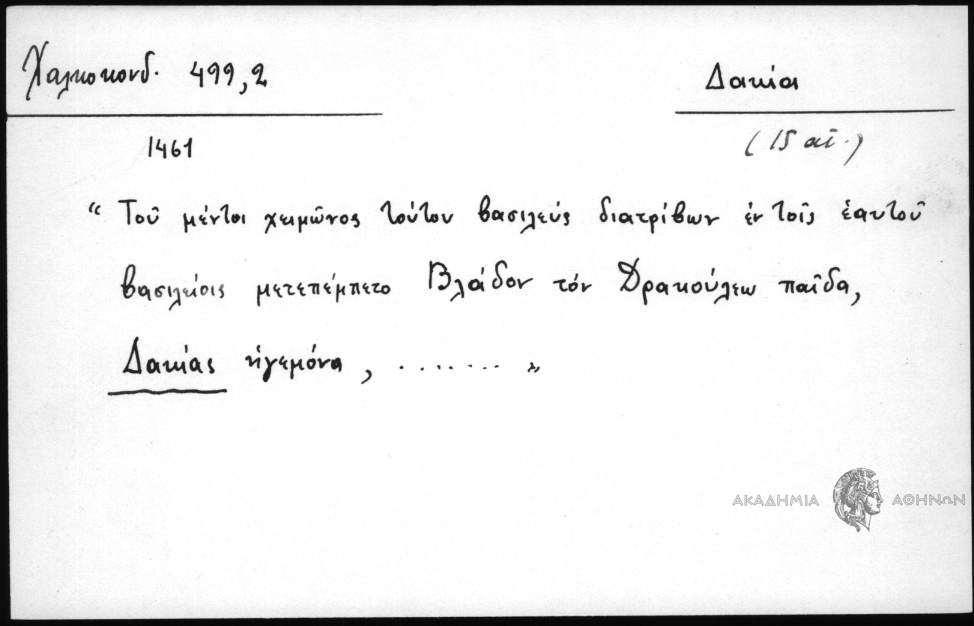 Χαλκοκονδ. 499,2
Δακία
1461
(15 αἰ.)
“ Τοῦ μέντοι χειμῶνος τούτου βασιλεύς διατρίβων ἐν τοῖς ἑαυτοῦ
βασιλείοις μετεπέμπετο Βλάδον τόν Δρακούλεω παῖδα,
Δακίας ἡγεμόνα, ........ ”
ΑΚΑΔΗΜΙΑ ΑΘΗΝΩΝ